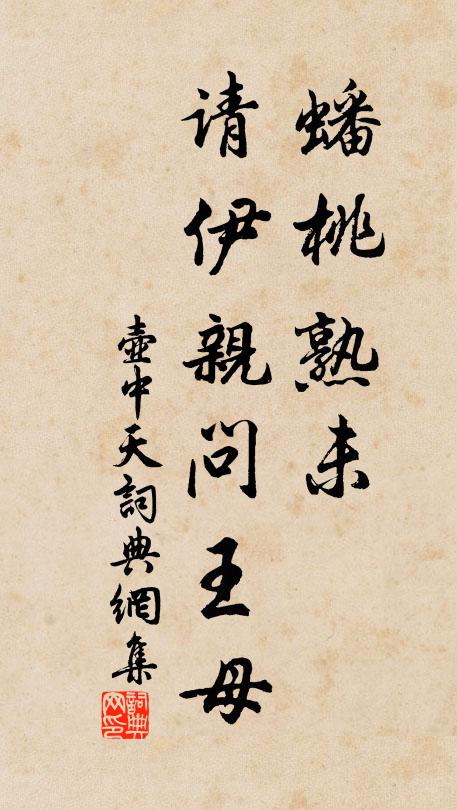 蟠桃熟未
请伊親问王母
壷中天詞典網集
詞典网印